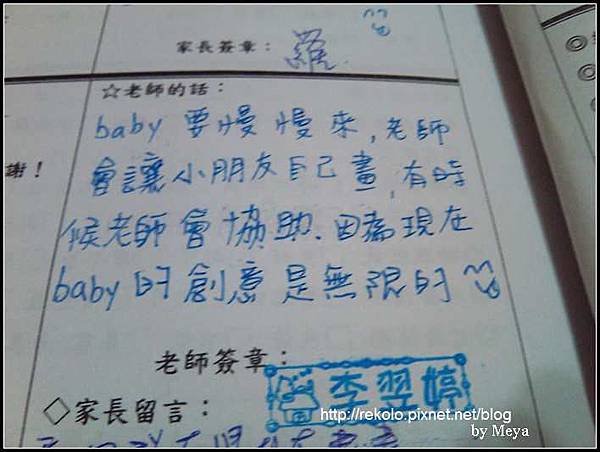 家長簽章：羅
☆老師的話：
baby 要慢慢來，老師
會讓小朋友自己畫，有時
候老師會協助．因為現在
baby 的創意是無限的
謝！
老師簽章：
李翌婷
◇家長留言：
http://rekolo.pixnet.net/blog
by Meya